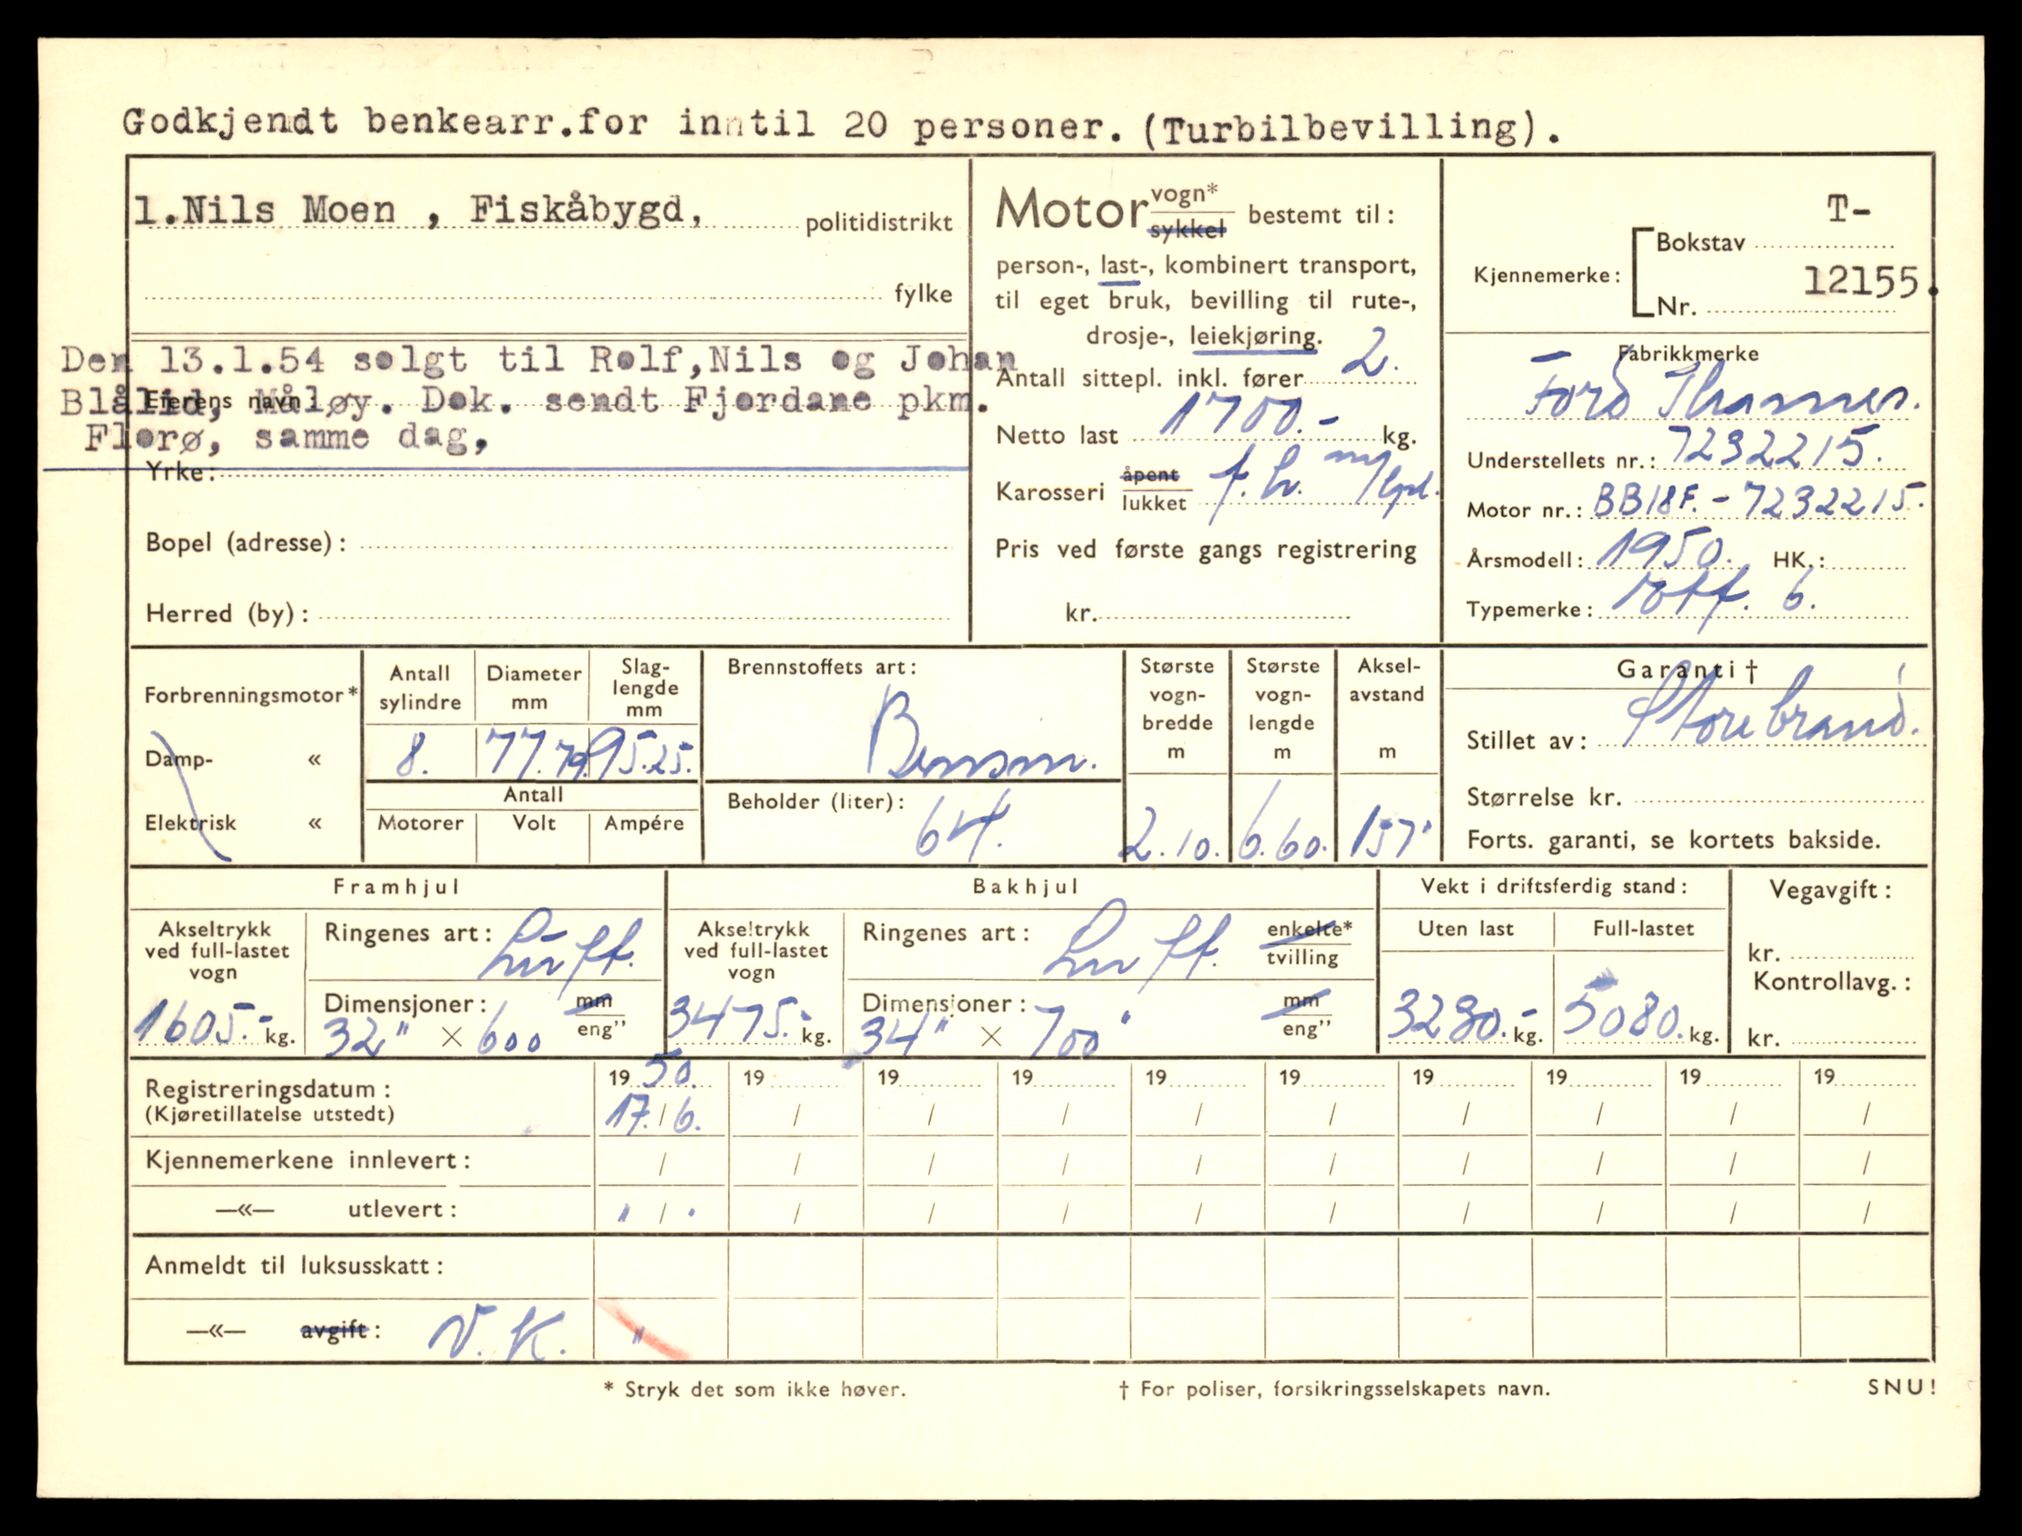 Godkjendt benkearr.for inntil 20 personer. (Turbilbevilling).
1.Nils Moen , Fiskåbygd, politidistrikt
fylke
Den 13.1.54 solgt til Rolf,Nils og Johan
Blålid, Måløy. Dok. sendt Fjordane pkm.
Eierens navn:
Florø, samme dag,
Yrke:
Bopel (adresse):
Herred (by):
Motor vogn* sykkel bestemt til:
person-, last-, kombinert transport,
til eget bruk, bevilling til rute-,
drosje-, leiekjøring.
Antall sittepl. inkl. fører 2.
Netto last 1700.- kg.
Karosseri åpent lukket f.h.
Pris ved første gangs registrering
kr.
T-
Bokstav
Kjennemerke:
12155.
Nr.
Fabrikkmerke
Ford Thames.
Understellets nr.: 7232215.
Motor nr.: BB18F.-7232215.
Årsmodell: 1950. HK.:
Typemerke: 6.
Forbrenningsmotor*
Damp- «
Elektrisk «
Antall sylindre
8.
Diameter mm
77.79.
Slag-lengde mm
95.25.
Antall
Motorer Volt Ampére
Brennstoffets art:
Bensin.
Beholder (liter):
64.
Største vogn-bredde m
2.10.
Største vogn-lengde m
6.60.
Aksel-avstand m
157"
Garanti †
Stillet av: Storebrand.
Størrelse kr.
Forts. garanti, se kortets bakside.
Framhjul
Akseltrykk ved full-lastet vogn
1605.- kg.
Ringenes art: Luft.
Dimensjoner: mm eng”
32" × 600
Bakhjul
Akseltrykk ved full-lastet vogn
3475.- kg.
Ringenes art: Luft. enkelte* tvilling
Dimensjoner: mm eng”
34" × 700"
Vekt i driftsferdig stand:
Uten last Full-lastet
kg. 5080. kg.
Vegavgift:
kr.
Kontrollavg.:
kr.
Registreringsdatum: 1950. 19 19 19 19 19 19 19 19 19
(Kjøretillatelse utstedt) 17./6. / / / / / / / / /
Kjennemerkene innlevert: / / / / / / / / / /
—«— utlevert: " / " / / / / / / / / /
Anmeldt til luksusskatt:
—«— avgift: V.K. "
* Stryk det som ikke høver.
† For poliser, forsikringsselskapets navn.
SNU!